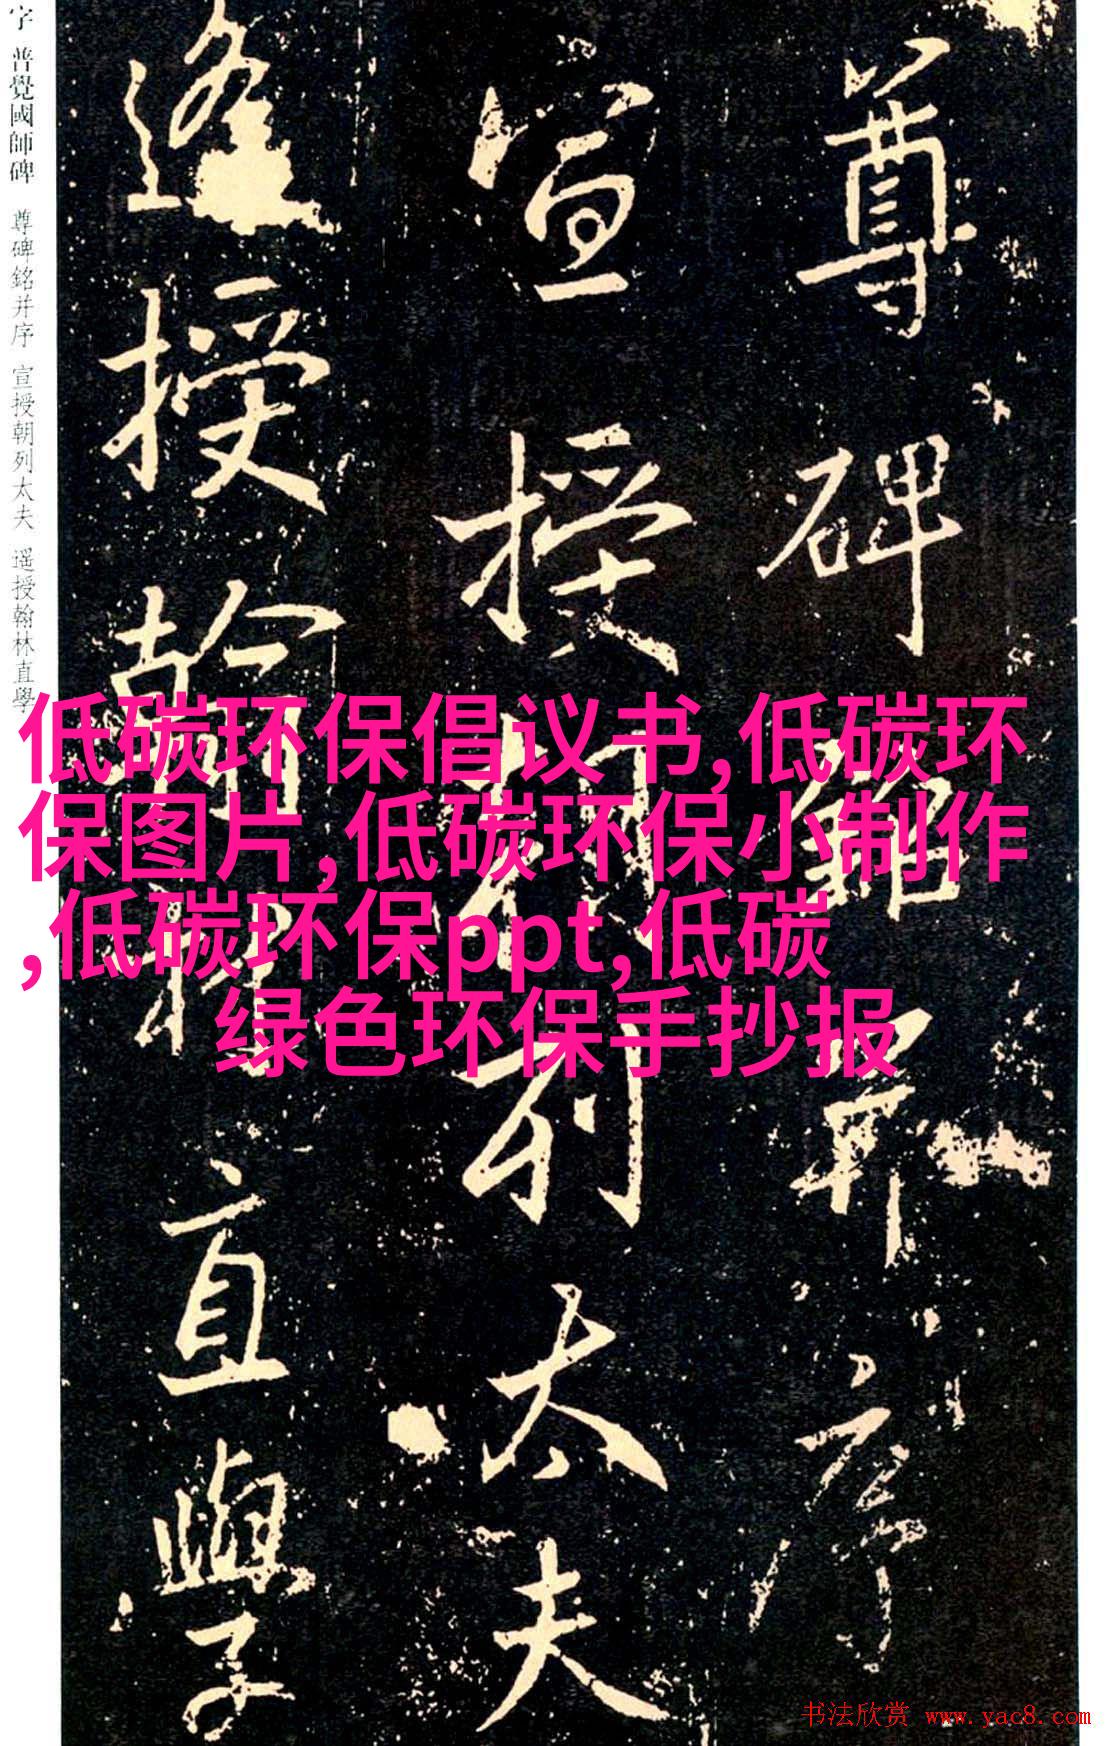 尊碑銘并序
宣授朝列太夫
遥授翰林直學
字 普覺國師碑 尊碑銘并序 宣授朝列太夫 遥授翰林直學
低碳环保倡议书,低碳环
保图片,低碳环保小制作
,低碳环保ppt,低碳
绿色环保手抄报
书法欣赏 www.yac8.com